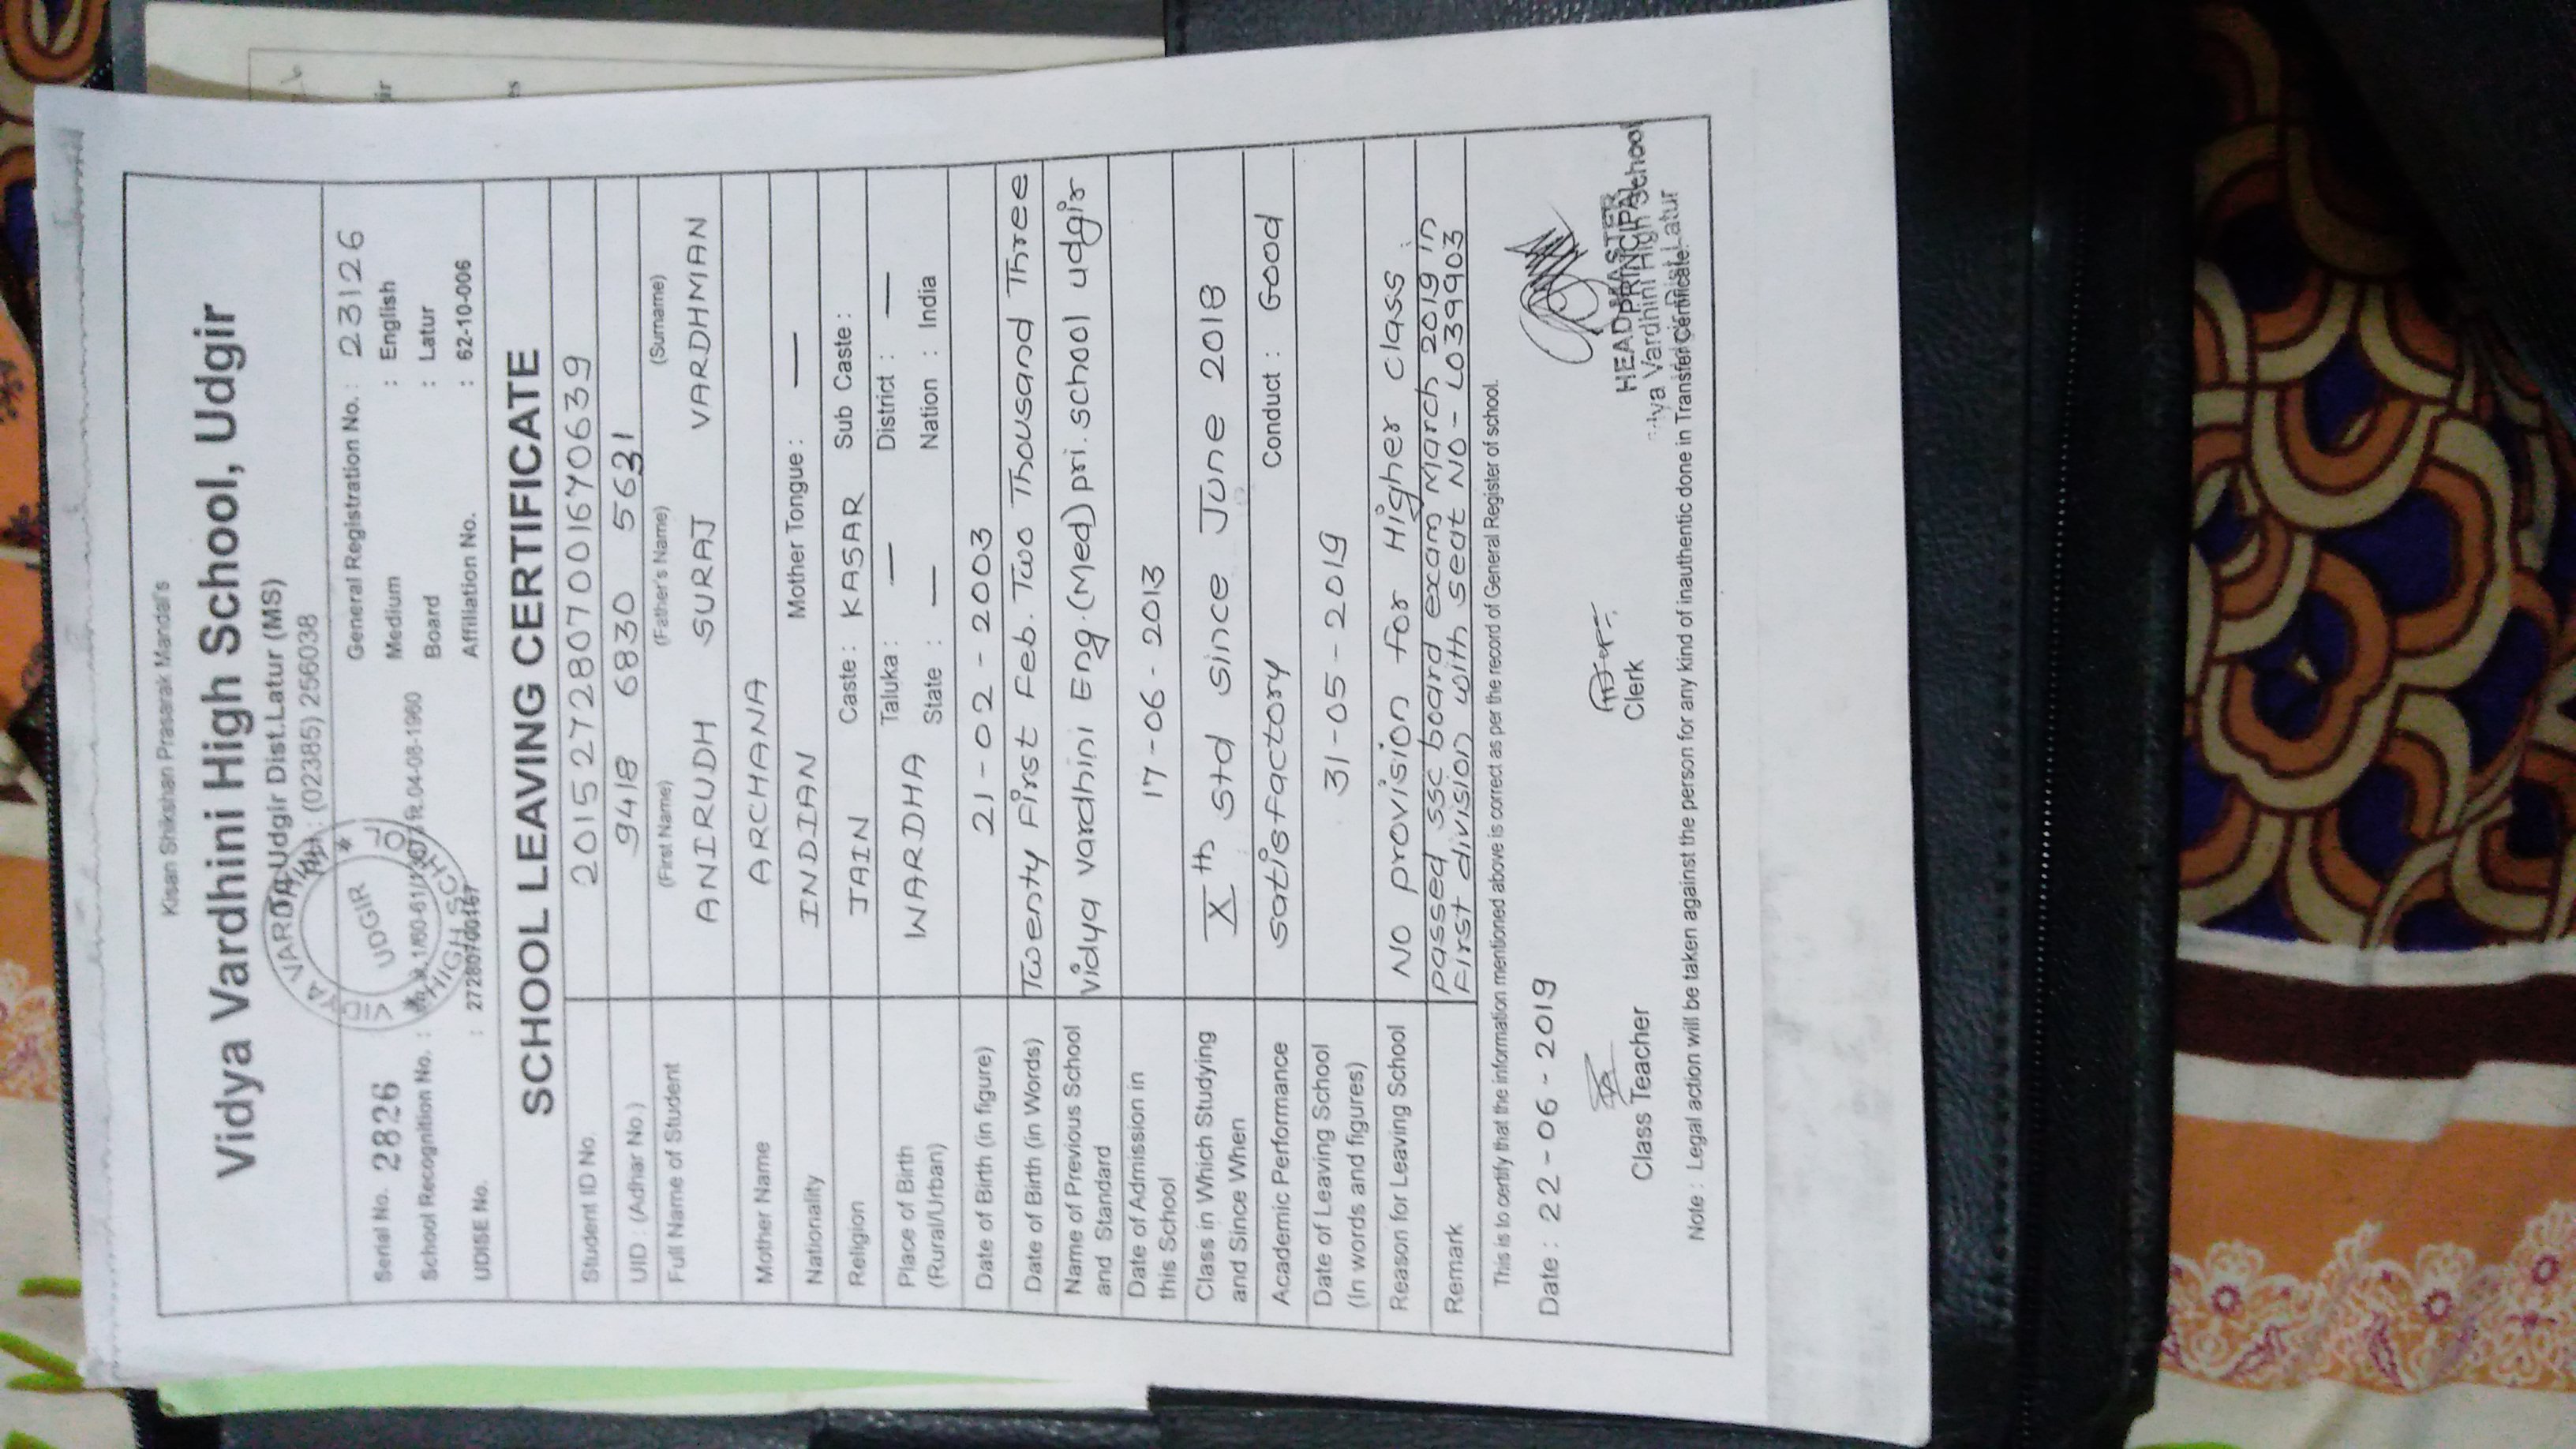 Kisan Shikshan Prasarak Mandal's
Vidya Vardhini High School, Udgir
Udgir Dist.Latur (MS)
: (02385) 256038
Serial No. 2826 General Registration No. : 23126
Medium : English
School Recognition No. : 04-08-1960 Board : Latur
UDISE No. : 27280700167 Affiliation No. : 62-10-006
UDGIR
HIGH SCH
SCHOOL LEAVING CERTIFICATE
Student ID No. 2015272807001670639
UID : (Adhar No.) 9418 6830 5631
Full Name of Student (First Name) (Father's Name) (Surname)
ANIRUDH SURAJ VARDHMAN
Mother Name ARCHANA
Nationality INDIAN Mother Tongue : —
Religion JAIN Caste : KASAR Sub Caste :
Place of Birth WARDHA Taluka : — District : —
(Rural/Urban) State : — Nation : India
Date of Birth (in figure) 21-02-2003
Date of Birth (in Words) Twenty First Feb. Two Thousand Three
Name of Previous School and Standard vidya vardhini Eng.(Med) pri. school udgir
Date of Admission in this School 17-06-2013
Class in Which Studying and Since When Xth std since June 2018
Academic Performance satisfactory Conduct : Good
Date of Leaving School (In words and figures) 31-05-2019
Reason for Leaving School No provision for Higher class.
Remark passed ssc board exam March 2019 in
First division with seat No - L039903
This is to certify that the information mentioned above is correct as per the record of General Register of school.
Date : 22-06-2019
Class Teacher Clerk HEAD PRINCIPAL
HEADMASTER
Vardhini High School
Note : Legal action will be taken against the person for any kind of inauthentic done in Transfer Certificate.